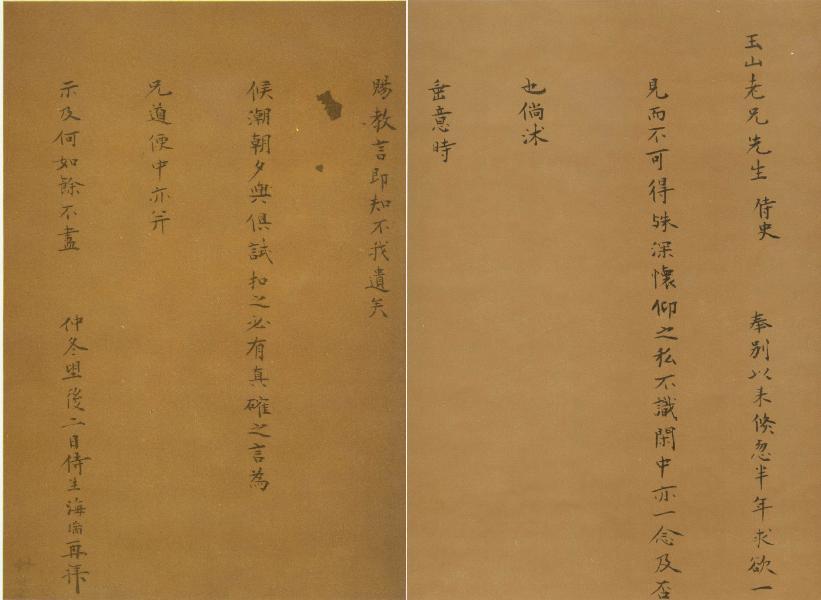 玉山老兄先生 侍史 奉別以来倏忽半年求欲一
見而不可得殊深懷仰之私不識閑中亦一念及否
也倘沐
垂意時
賜教言即知不我遺矣
候潮朝夕與俱試扣之必有真確之言為
兄道便中亦并
示及何如餘不盡 仲冬朢後二日侍生海瑞再拜